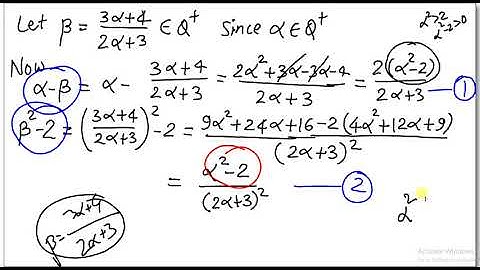 Let β = (3α+4)/(2α+3) ∈ Q⁺ Since α∈Q⁺
α²>2
α²-2>0
Now
α-β = α- (3α+4)/(2α+3) = (2α²+3α-3α-4)/(2α+3) = 2(α²-2)/(2α+3) — ①
β²-2 = ((3α+4)/(2α+3))² -2 = (9α²+24α+16-2(4α²+12α+9))/(2α+3)²
= (α²-2)/(2α+3)² — ②
β= (3α+4)/(2α+3)
α²
Activate Windows